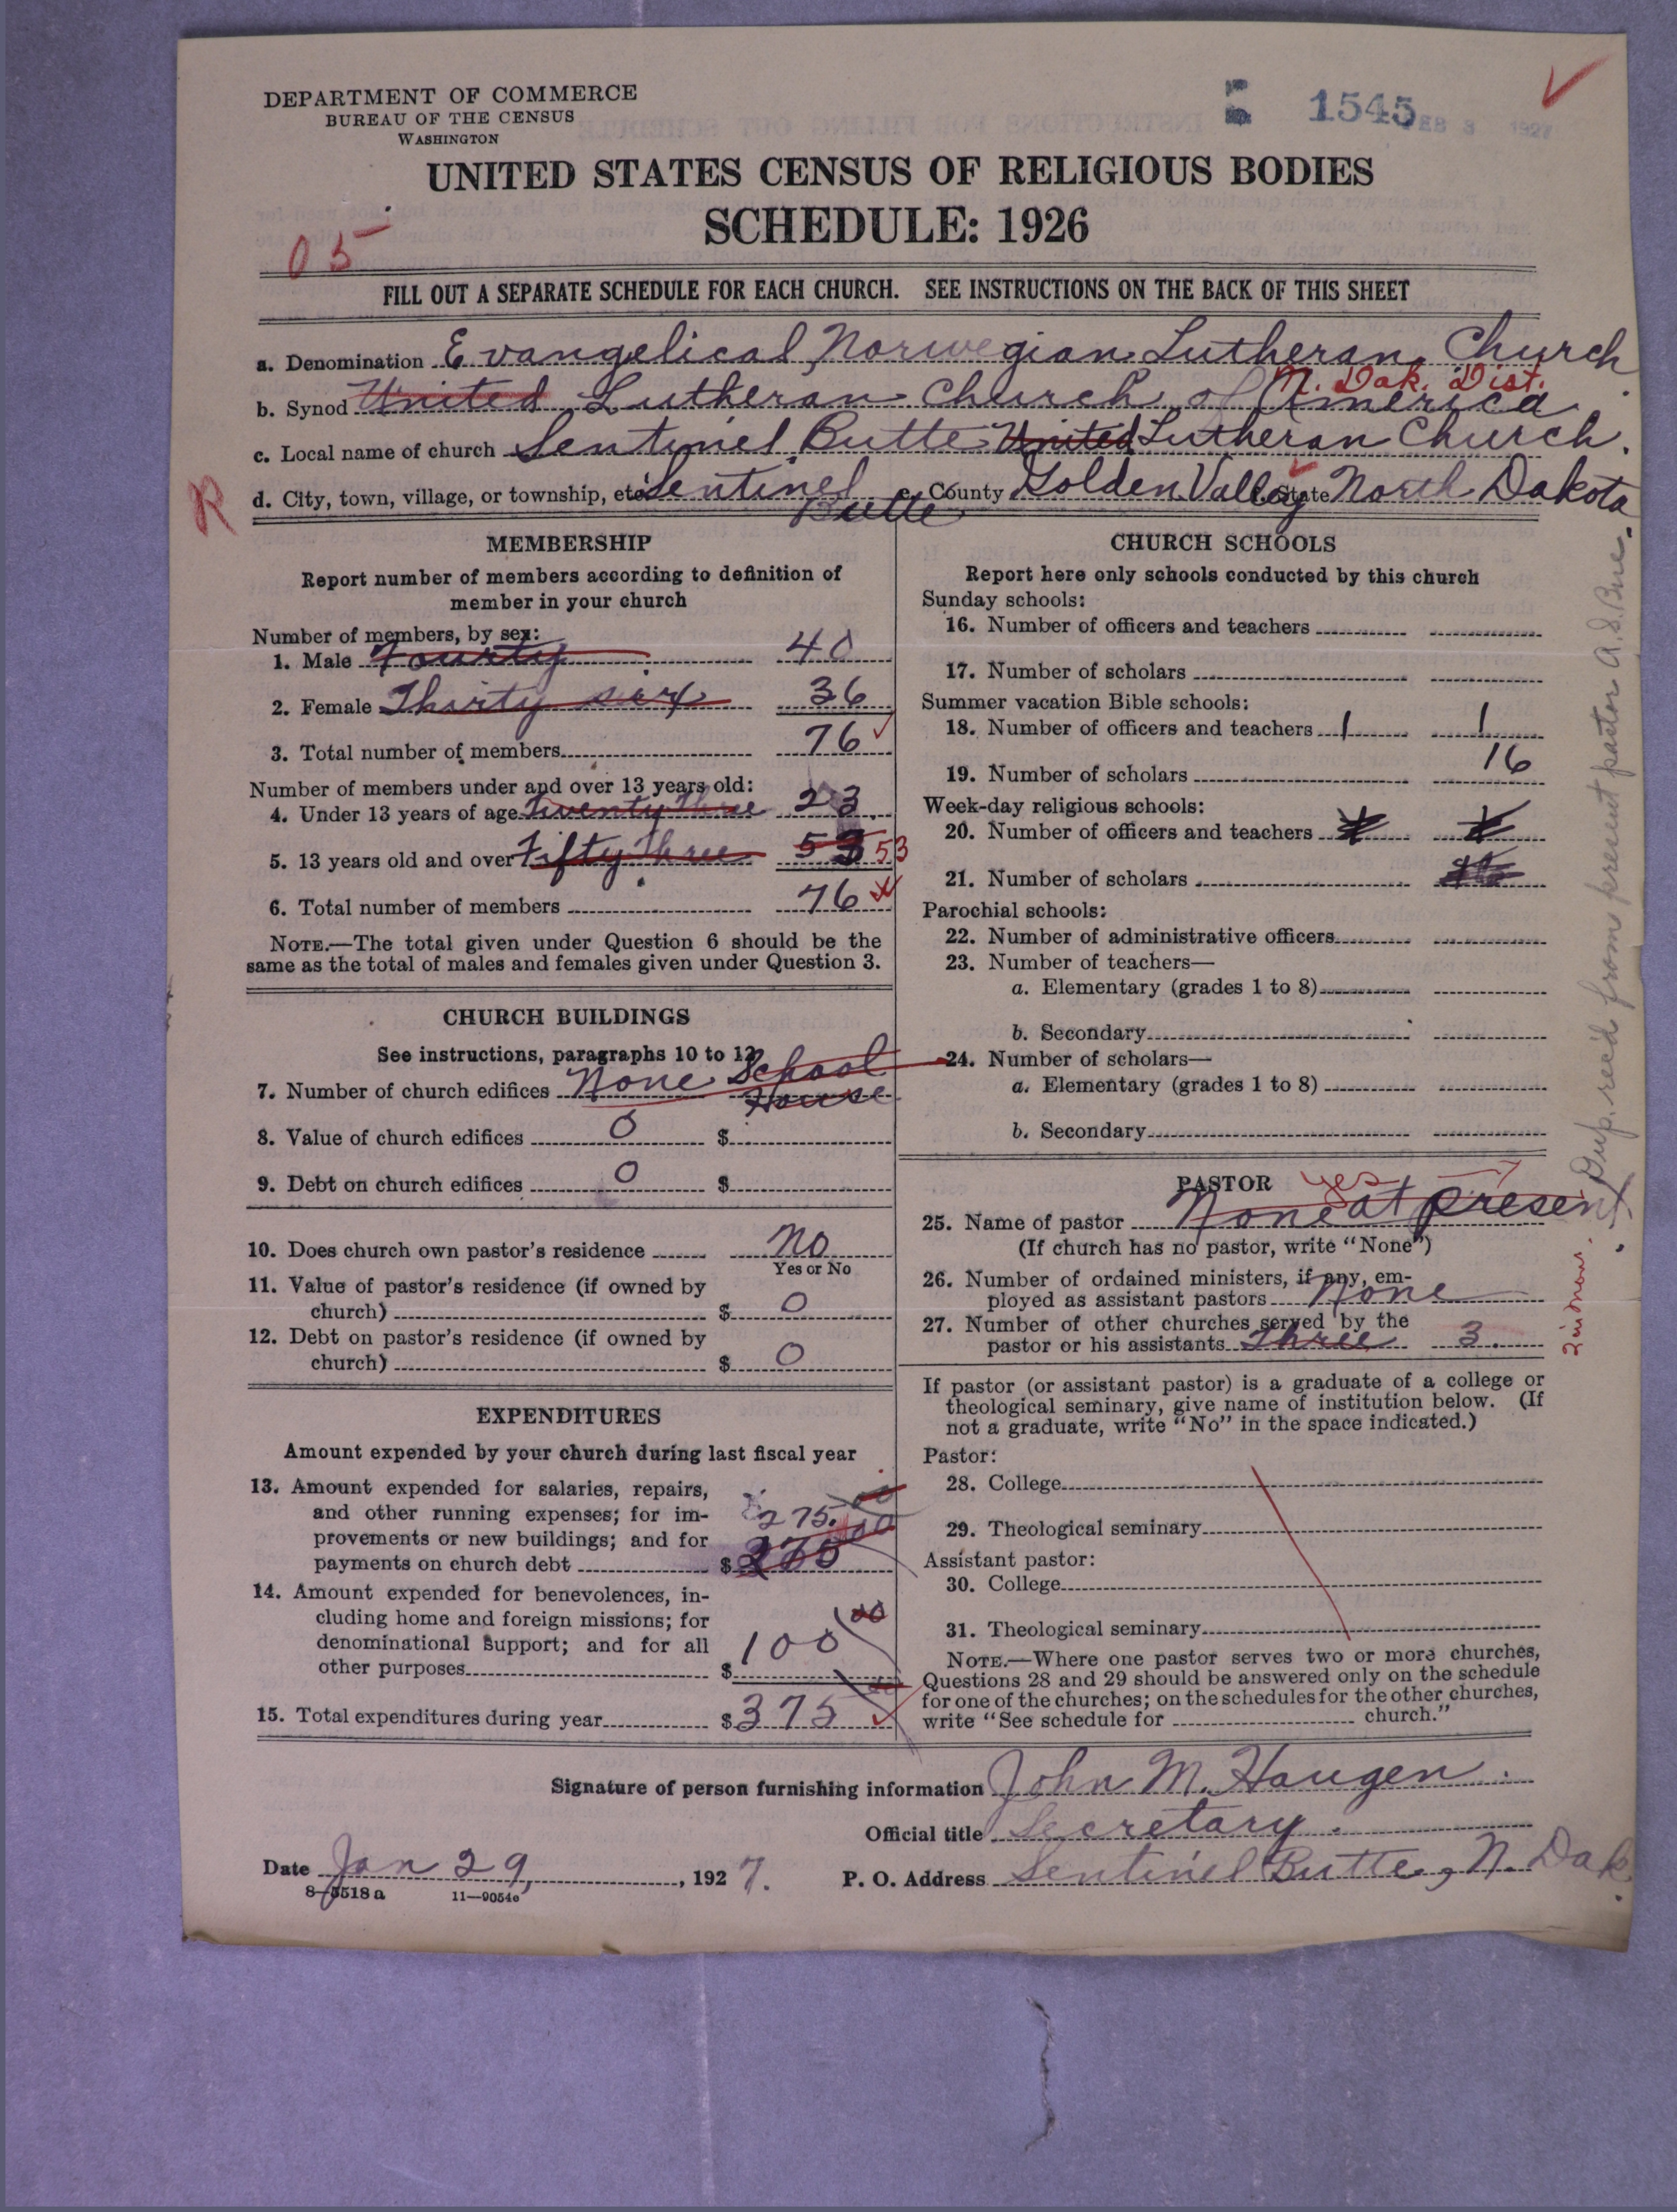 DEPARTMENT OF COMMERCE
BUREAU OF THE CENSUS
WASHINGTON
1545
FEB 3 1927
UNITED STATES CENSUS OF RELIGIOUS BODIES
SCHEDULE: 1926
05
FILL OUT A SEPARATE SCHEDULE FOR EACH CHURCH. SEE INSTRUCTIONS ON THE BACK OF THIS SHEET
a. Denomination Evangelical Norwegian Lutheran Church
N. Dak. Dist.
b. Synod United Lutheran Church of America
c. Local name of church Sentinel Butte United Lutheran Church.
R
d. City, town, village, or township, etc. Sentinel Butte e. County Golden Valley State North Dakota
MEMBERSHIP
Report number of members according to definition of
member in your church
Number of members, by sex:
1. Male Fourty 40
2. Female Thirty six 36
3. Total number of members 76
Number of members under and over 13 years old:
4. Under 13 years of age Twenty three 23
5. 13 years old and over Fifty three 53 53
6. Total number of members 76
NOTE.—The total given under Question 6 should be the
same as the total of males and females given under Question 3.
CHURCH BUILDINGS
See instructions, paragraphs 10 to 12
7. Number of church edifices None School House
8. Value of church edifices 0 $
9. Debt on church edifices 0 $
10. Does church own pastor's residence No
Yes or No
11. Value of pastor's residence (if owned by
church) $ 0
12. Debt on pastor's residence (if owned by
church) $ 0
EXPENDITURES
Amount expended by your church during last fiscal year
13. Amount expended for salaries, repairs,
and other running expenses; for im-
provements or new buildings; and for
275.00
payments on church debt $ 275
14. Amount expended for benevolences, in-
cluding home and foreign missions; for
denominational support; and for all
other purposes $ 100 00
15. Total expenditures during year $ 375
CHURCH SCHOOLS
Report here only schools conducted by this church
Sunday schools:
16. Number of officers and teachers
17. Number of scholars
Summer vacation Bible schools:
18. Number of officers and teachers 1 1
19. Number of scholars 16
Week-day religious schools:
20. Number of officers and teachers
21. Number of scholars
Parochial schools:
22. Number of administrative officers
23. Number of teachers—
a. Elementary (grades 1 to 8)
b. Secondary
24. Number of scholars—
a. Elementary (grades 1 to 8)
b. Secondary
PASTOR yes
25. Name of pastor None at present.
(If church has no pastor, write "None")
26. Number of ordained ministers, if any, em-
ployed as assistant pastors None
27. Number of other churches served by the
pastor or his assistants Three 3.
If pastor (or assistant pastor) is a graduate of a college or
theological seminary, give name of institution below. (If
not a graduate, write "No" in the space indicated.)
Pastor:
28. College
29. Theological seminary
Assistant pastor:
30. College
31. Theological seminary
NOTE.—Where one pastor serves two or more churches,
Questions 28 and 29 should be answered only on the schedule
for one of the churches; on the schedules for the other churches,
write "See schedule for church."
Dup. rec'd from present pastor A. S. Bue.
Signature of person furnishing information John M. Haugen.
Official title Secretary.
Date Jan 29, 1927. P. O. Address Sentinel Butte, N. Dak.
8—5518 a 11—9054e